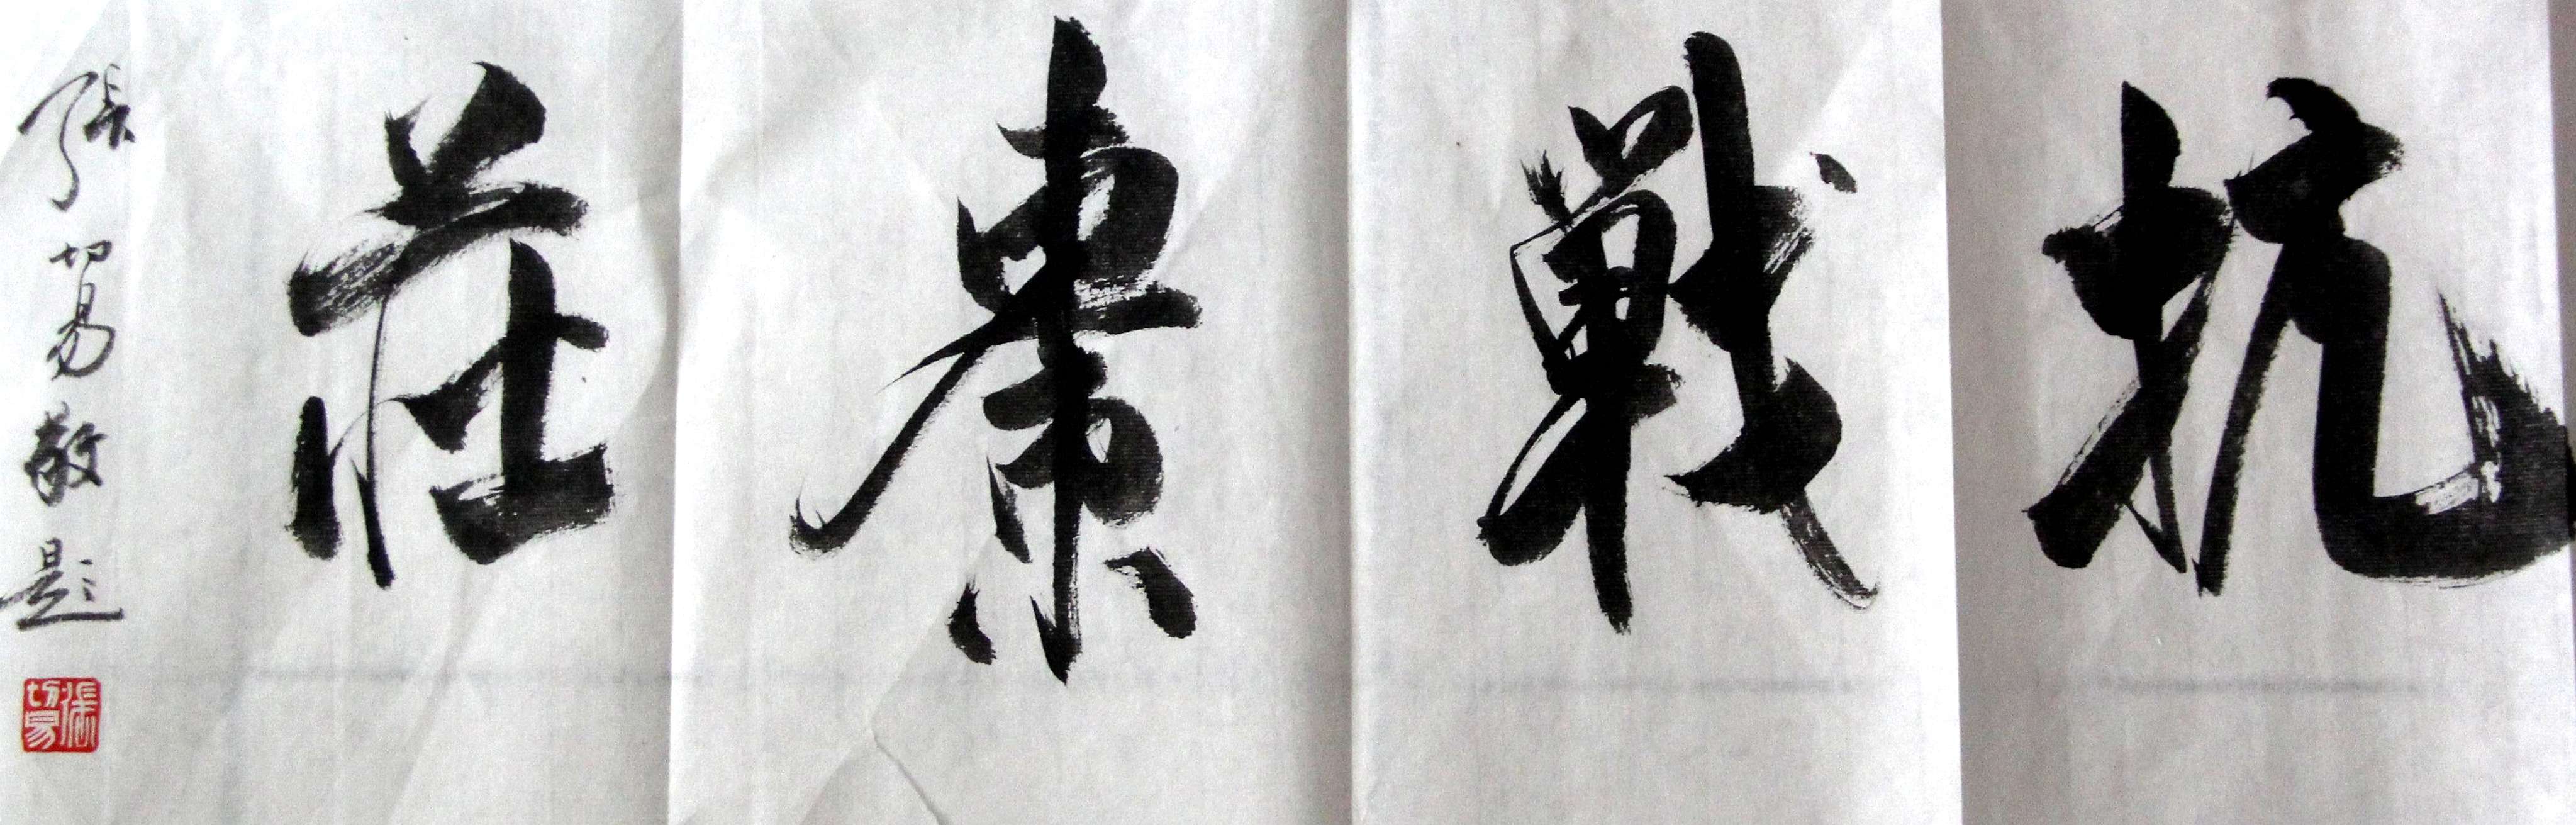 抗戰棗莊
張切易敬題
張切易